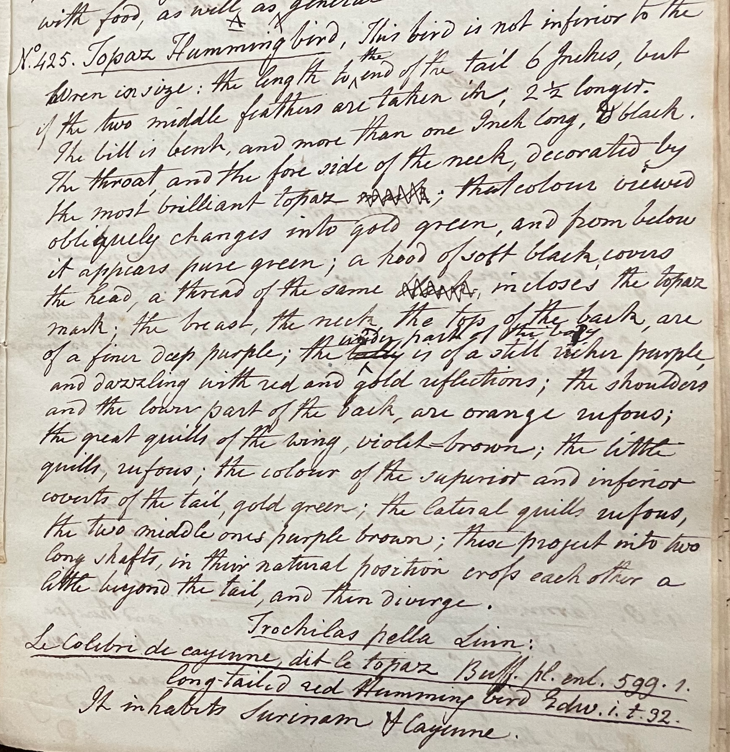 with food, as well as general
No. 425. Topaz Humming bird, This bird is not inferior to the
Wren in size: the length to the end of the tail 6 Inches, but
if the two middle feathers are taken in, 2½ longer.
The bill is bent, and more than one Inch long, & black.
The throat, and the fore side of the neck, decorated by
the most brilliant topaz; that colour viewed
obliquely changes into gold green, and from below
it appears pure green; a hood of soft black covers
the head, a thread of the same, incloses the topaz
mark; the breast, the neck, the top of the back, are
of a finer deep purple; the under part of the body is of a still richer purple,
and dazzling with red and gold reflections; the shoulders
and the lower part of the back, are orange rufous;
the great quills of the wing, violet-brown; the little
quills, rufous; the colour of the superior and inferior
coverts of the tail, gold green; the lateral quills rufous,
the two middle ones purple brown; these project into two
long shafts, in their natural position cross each other a
little beyond the tail, and then diverge.
Trochilas pella Linn:
Le Colibri de cayenne, dit le topaz Buff. pl. enl. 599. 1.
long-tailed red Humming bird Edw. i. t. 32.
It inhabits Surinam & Cayenne.